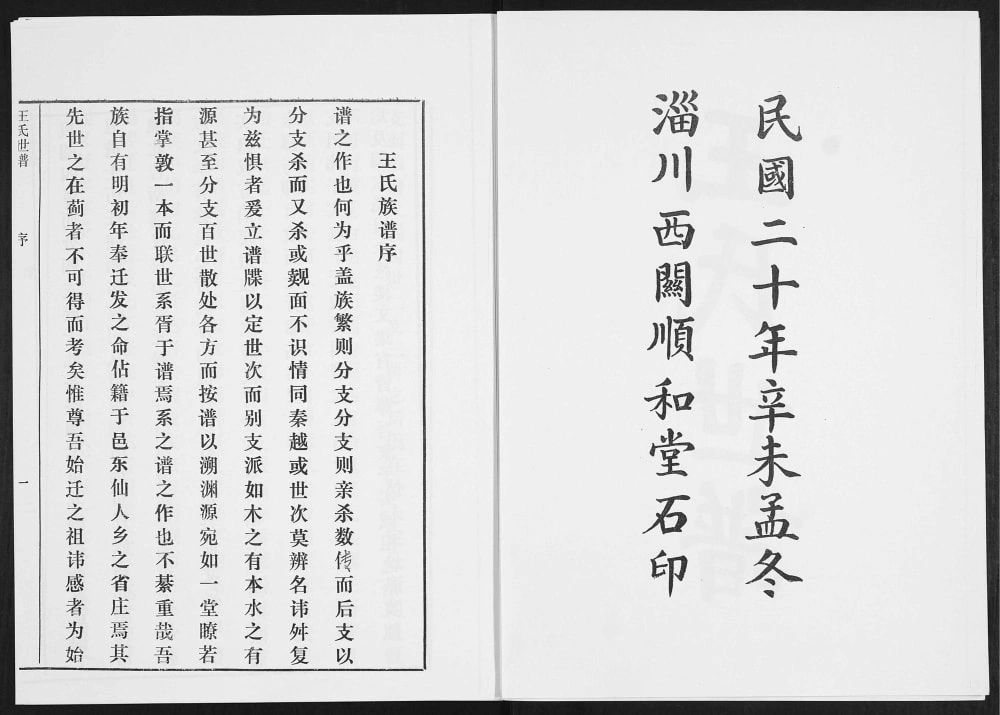 民國二十年辛未孟冬
淄川西關順和堂石印
王氏族谱序
谱之作也何为乎盖族繁则分支分支则亲杀数传而后支以
分支杀而又杀或觌面不识情同秦越或世次莫辨名讳舛复
为兹惧者爰立谱牒以定世次而别支派如木之有本水之有
源甚至分支百世散处各方而按谱以溯渊源宛如一堂瞭若
指掌敦一本而联世系胥于谱焉系之谱之作也不綦重哉吾
族自有明初年奉迁发之命佔籍于邑东仙人乡之省庄焉其
先世之在蓟者不可得而考矣惟尊吾始迁之祖讳感者为始
王氏世譜
序
一